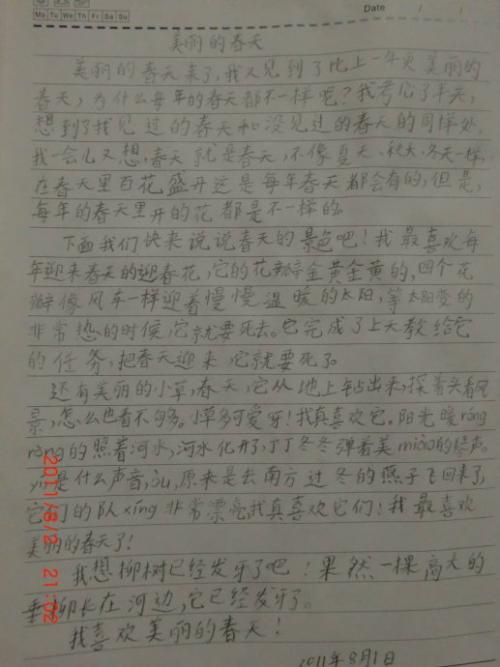 Mo Tu We Th Fr Sa Su
Date / /
美丽的春天
美丽的春天来了,我又见到了比上一年更美丽的
春天,为什么每年的春天都不一样呢?我考虑了半天,
想到了我见过的春天和没见过的春天的同样处,
我一会儿又想,春天就是春天,不像夏天、秋天、冬天一样,
在春天里百花盛开这是每年春天都会有的,但是,
每年的春天里开的花都是不一样的。
下面我们快来说说春天的景色吧!我最喜欢每
年迎来春天的迎春花,它的花瓣金黄金黄的,四个花
瓣像风车一样迎着慢慢温暖的太阳,等太阳变的
非常热的时候,它就要死去。它完成了上天教给它
的任务,把春天迎来,它就要死了。
还有美丽的小草,春天,它从地上钻出来,探着头看风
景,怎么也看不够。小草多可爱呀!我真喜欢它。阳光暖róng
róng的照着河水,河水化开了,丁丁冬冬弹着美miào的琴声。
yí是什么声音,òu,原来是去南方过冬的燕子飞回来了,
它们的队xíng非常漂亮,我真喜欢它们!我最喜欢
美丽的春天了!
我想柳树已经发牙了吧!果然一棵高大的
垂柳长在河边,它已经发牙了。
我喜欢美丽的春天!
2011年8月1日
2011/8/2 21:02